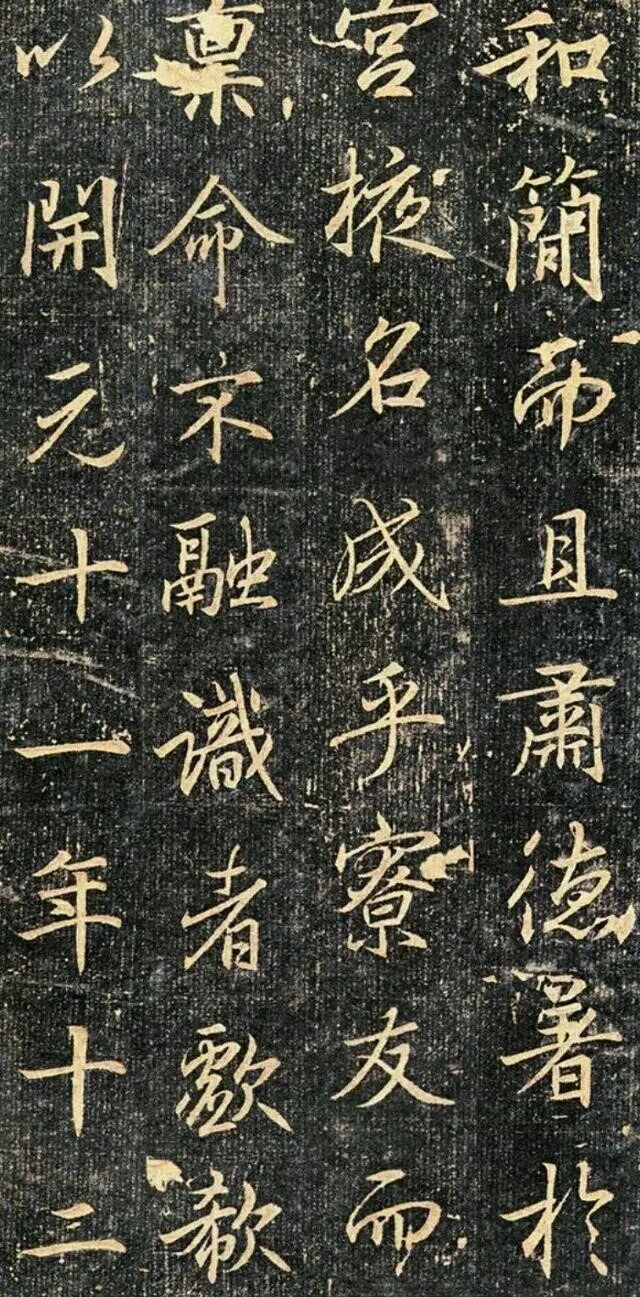 和簡而且肅德署於
宮掖名成乎寮友而
稟命不融識者歔欷
以開元十一年十二